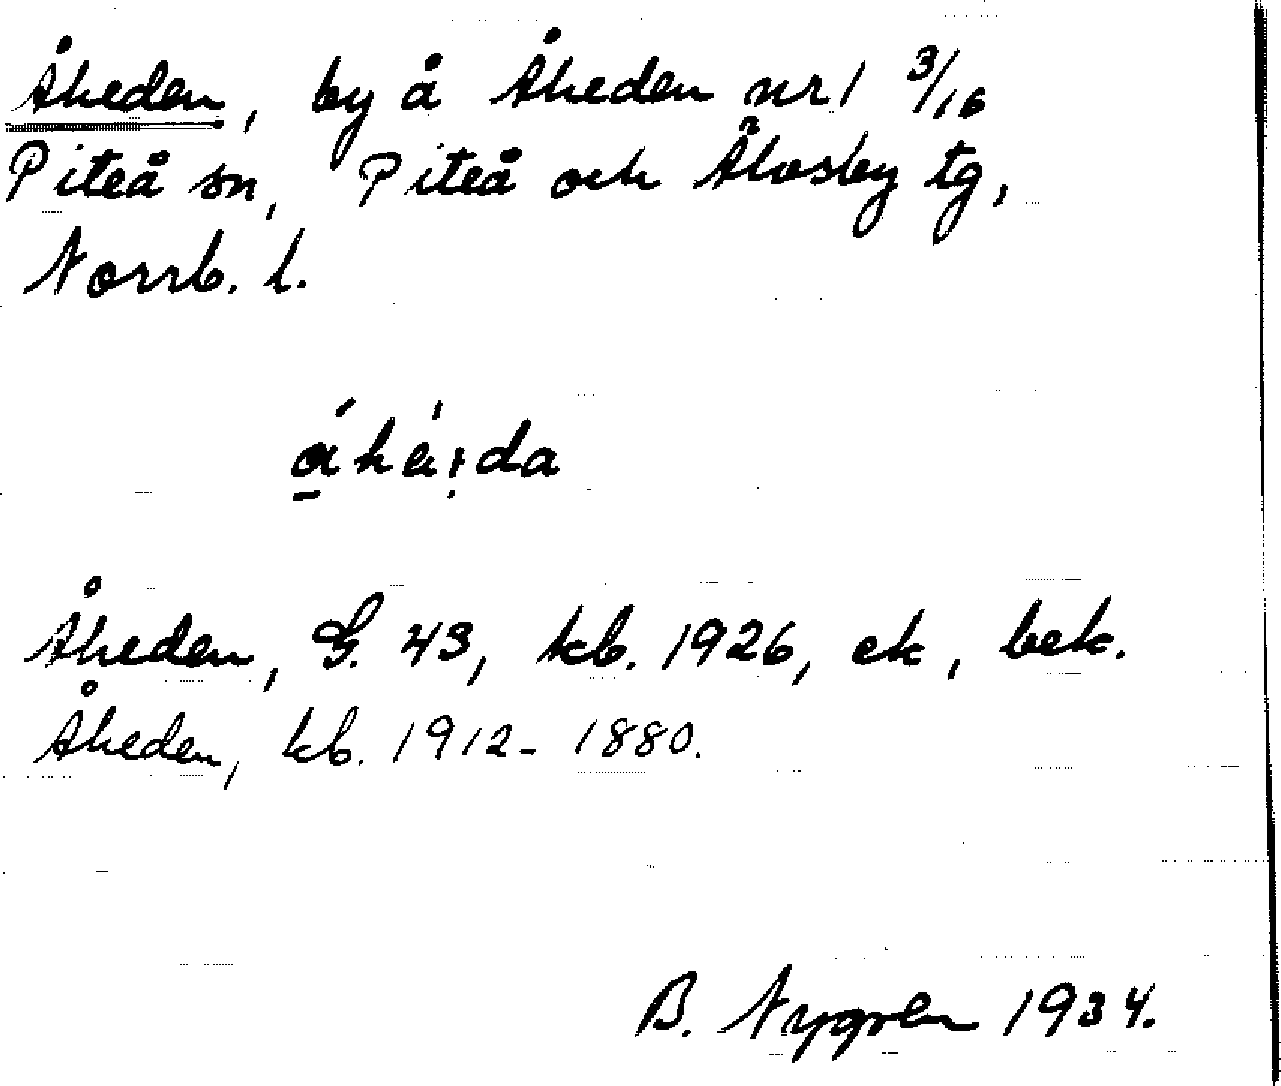 Åheden, by å Åheden nr 1 3/16
Piteå sn, Piteå och Älvsby tg,
Norrb. l.
Åheden, G. 43, kb. 1926, ek, bek.
Åheden, kb. 1912-1880.
B. Nygren 1934.